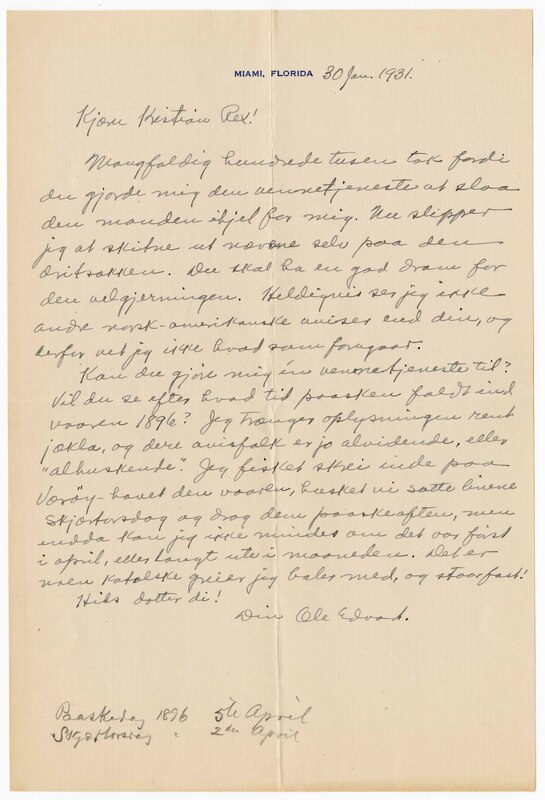 MIAMI, FLORIDA 30 Jan. 1931.
Kjære Kristian Rex!
Mangfaldig hundrede tusen tak fordi
du gjorde mig den vennetjeneste at slaa
den manden ihjel for mig. Nu slipper
jeg at skitne ut nævene selv paa den
dritsækken. Du skal ha en god dram for
den velgjerningen. Heldigvis ser jeg ikke
andre norsk-amerikanske aviser end din, og
derfor vet jeg ikke hvad som foregaar.
Kan du gjøre mig én vennetjeneste til?
Vil du se efter hvad tid paasken faldt ind
vaaren 1896? Jeg trænger oplysningen rent
jækla, og dere avisfolk er jo alvidende, eller
"alhuskende". Jeg fisket skrei inde paa
Værøy-havet den vaaren, hæsket vi satte linene
Skjærtorsdag og drog dem paaskeaften, men
endda kan jeg ikke mindes om det var først
i april, eller langt ute i maaneden. Det er
noen katolske greier jeg bales med, og staar fast!
Hils dotter di!
Din Ole Edvart.
Paaskedag 1896 5th April
Skjærtorsdag " 2en April